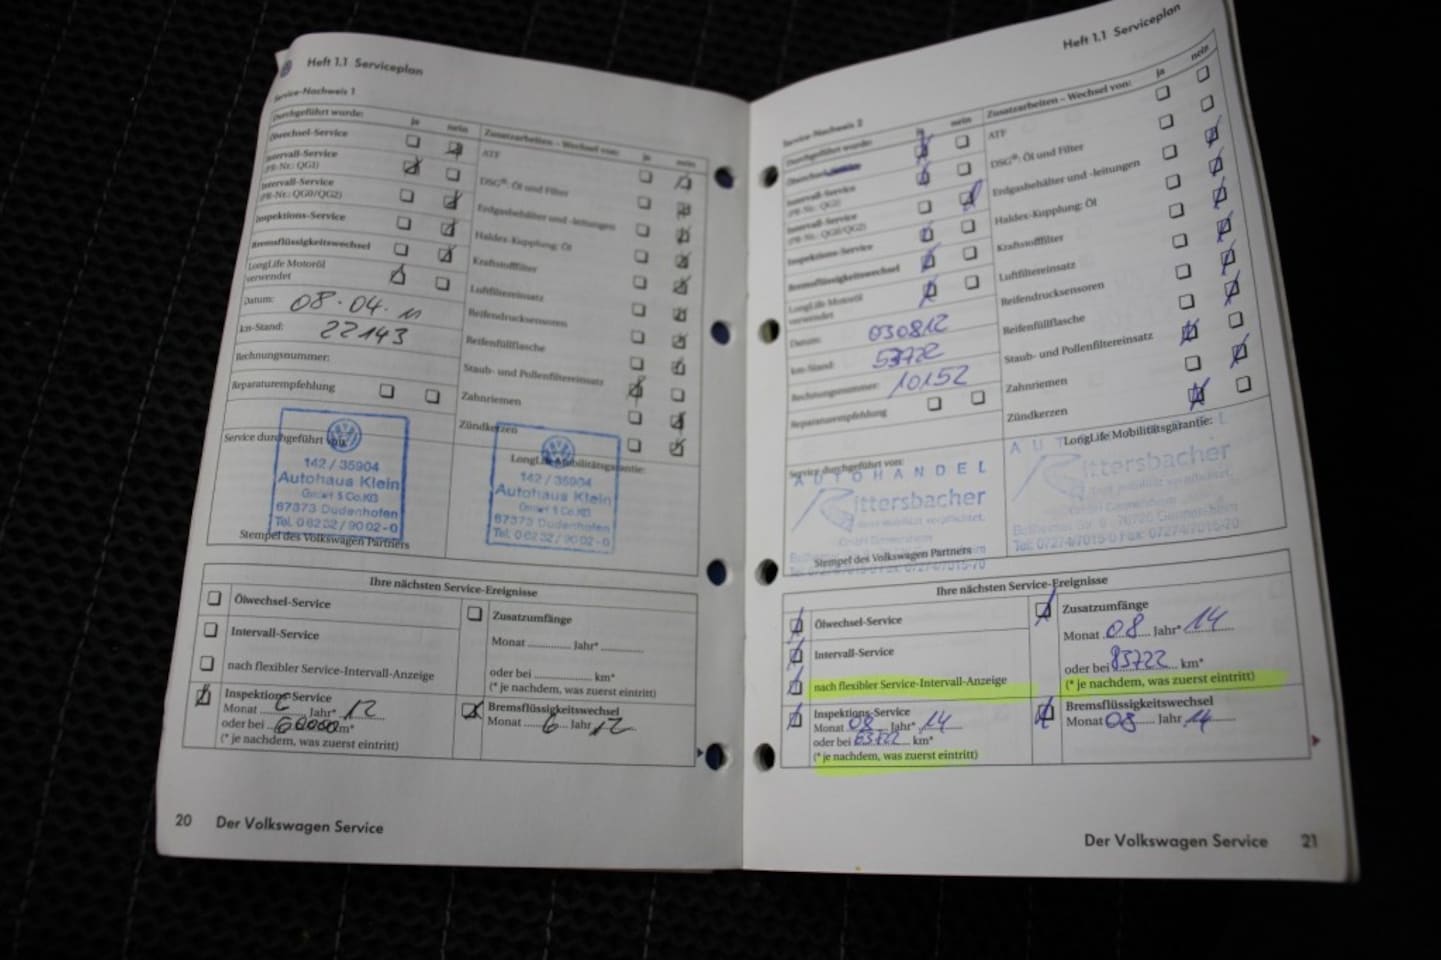 Heft 1.1 Serviceplan
Service-Nachweis 1
Durchgeführt wurde: ja nein
Ölwechsel-Service
Intervall-Service
(PR-Nr.: QG1)
Intervall-Service
(PR-Nr.: QG0/QG2)
Inspektions-Service
Bremsflüssigkeitswechsel
LongLife Motoröl
verwendet
Datum: 08.04.11
km-Stand: 22143
Rechnungsnummer:
Reparaturempfehlung
Zusatzarbeiten – Wechsel von: ja nein
ATF
DSG®: Öl und Filter
Erdgasbehälter und -leitungen
Haldex-Kupplung: Öl
Kraftstofffilter
Luftfiltereinsatz
Reifendrucksensoren
Reifenfüllflasche
Staub- und Pollenfiltereinsatz
Zahnriemen
Zündkerzen
Service durchgeführt von:
142 / 35904
Autohaus Klein
GmbH & Co.KG
67373 Dudenhofen
Tel. 06232/9002-0
Stempel des Volkswagen Partners
LongLife Mobilitätsgarantie:
142 / 35904
Autohaus Klein
GmbH & Co.KG
67373 Dudenhofen
Tel. 06232/9002-0
Ihre nächsten Service-Ereignisse
Ölwechsel-Service
Intervall-Service
nach flexibler Service-Intervall-Anzeige
Inspektions-Service
Monat 6 Jahr* 12
oder bei 60000 km*
(* je nachdem, was zuerst eintritt)
Zusatzumfänge
Monat .............. Jahr* ..............
oder bei .............. km*
(* je nachdem, was zuerst eintritt)
Bremsflüssigkeitswechsel
Monat 6 Jahr 12
20 Der Volkswagen Service
Heft 1.1 Serviceplan
Service-Nachweis 2
Durchgeführt wurde: ja nein
Intervall-Service
(PR-Nr.: QG1)
Intervall-Service
(PR-Nr.: QG0/QG2)
Inspektions-Service
Bremsflüssigkeitswechsel
LongLife Motoröl
verwendet
Datum: 030812
km-Stand: 53722
Rechnungsnummer: 10152
Reparaturempfehlung
Zusatzarbeiten – Wechsel von: ja nein
ATF
DSG®: Öl und Filter
Erdgasbehälter und -leitungen
Haldex-Kupplung: Öl
Kraftstofffilter
Luftfiltereinsatz
Reifendrucksensoren
Reifenfüllflasche
Staub- und Pollenfiltereinsatz
Zahnriemen
Zündkerzen
Service durchgeführt von:
AUTOHANDEL
Rittersbacher
Ihrer mobilität verpflichtet.
GmbH Germersheim
Stempel des Volkswagen Partners
LongLife Mobilitätsgarantie:
Rittersbacher
Ihrer mobilität verpflichtet.
GmbH Germersheim
76726 Germersheim
Tel: 07274/7015-0 Fax: 07274/7015-70
Ihre nächsten Service-Ereignisse
Ölwechsel-Service
Intervall-Service
nach flexibler Service-Intervall-Anzeige
Inspektions-Service
Monat 08 Jahr* 14
oder bei 83722 km*
(* je nachdem, was zuerst eintritt)
Zusatzumfänge
Monat 08 Jahr* 14
oder bei 83722 km*
(* je nachdem, was zuerst eintritt)
Bremsflüssigkeitswechsel
Monat 08 Jahr 14
Der Volkswagen Service 21